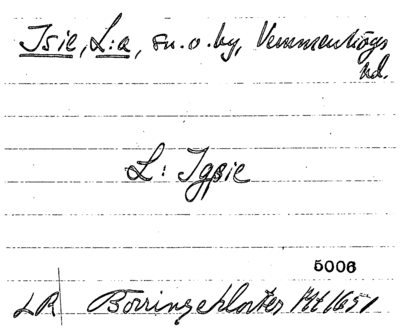 Isie, L:a, sn. o. by, Vemmenhögs
hd.
L: Igsie
5006
LR Börringekloster Mt 1651